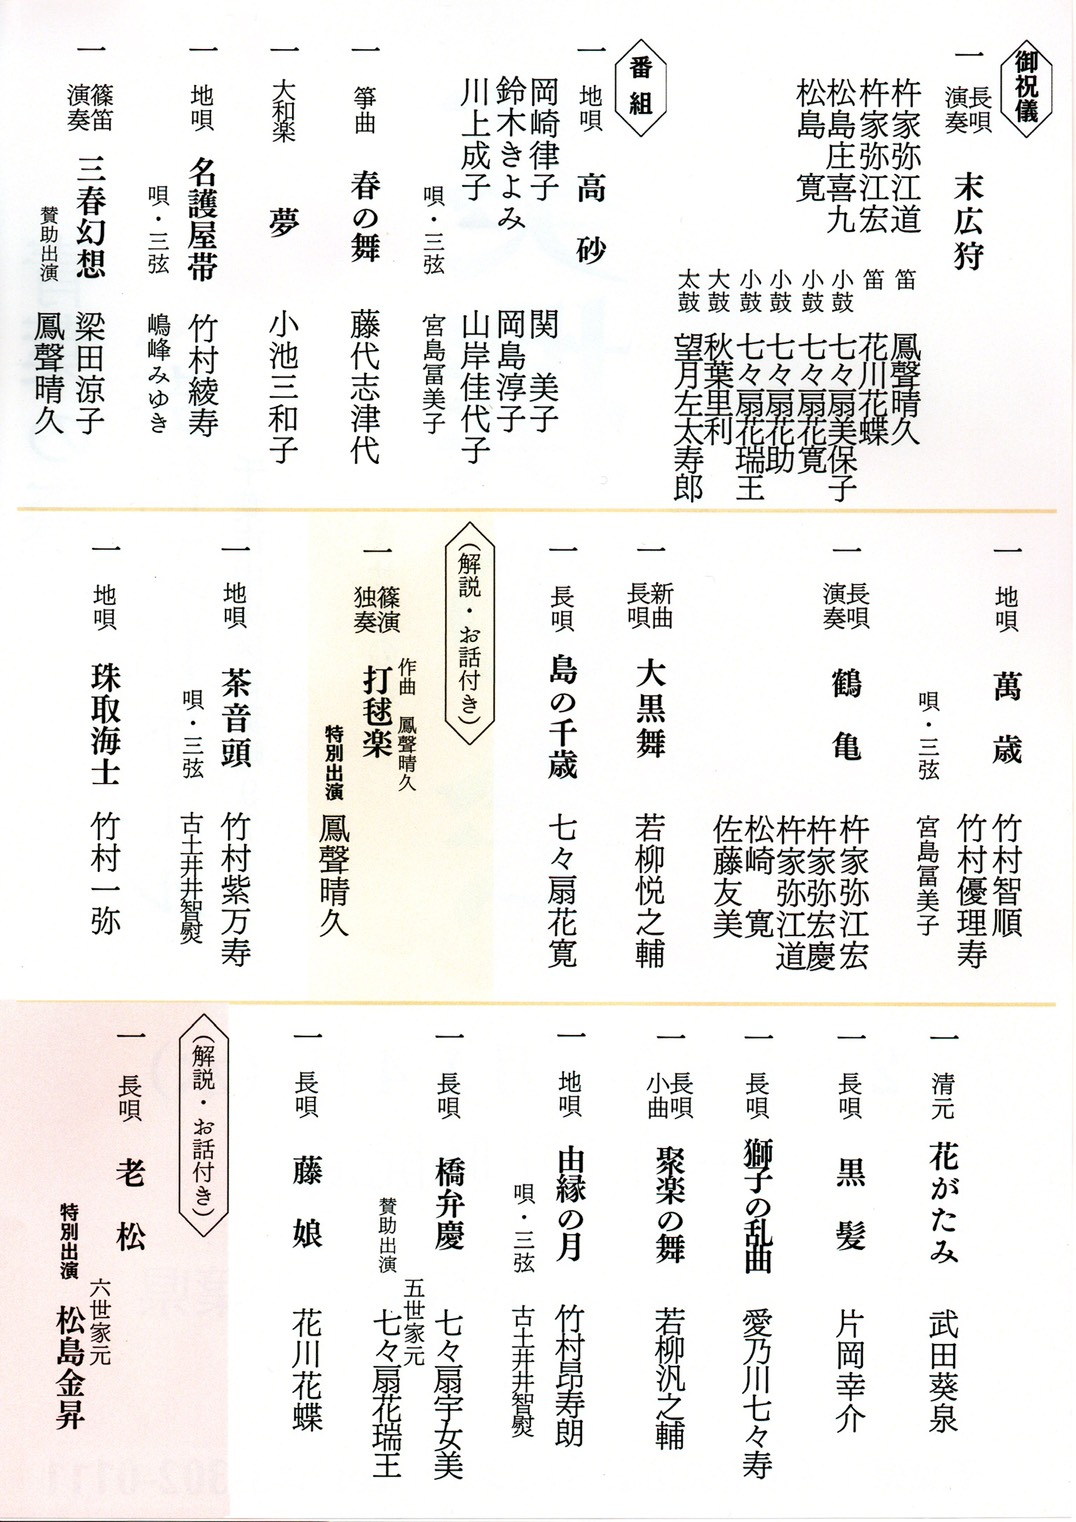 御祝儀
一 長唄演奏 末広狩
杵家弥江道
杵家弥江宏
松島庄喜九
松島 寛
笛 鳳聲晴久
笛 花川花蝶
小鼓 七々扇美保子
小鼓 七々扇花寛
小鼓 七々扇花助
小鼓 七々扇花瑞王
大鼓 秋葉里利
太鼓 望月左太寿郎
番組
一 地唄 高砂
岡崎律子 関 美子
鈴木きよみ 岡島淳子
川上成子 山岸佳代子
唄・三弦 宮島冨美子
一 箏曲 春の舞 藤代志津代
一 大和楽 夢 小池三和子
一 地唄 名護屋帯 竹村綾寿
唄・三弦 嶋峰みゆき
一 篠笛演奏 三春幻想 梁田涼子
賛助出演 鳳聲晴久
一 地唄 萬歳 竹村智順
竹村優理寿
唄・三弦 宮島冨美子
一 長唄演奏 鶴亀 杵家弥江宏
杵家弥宏慶
杵家弥江道
松崎 寛
佐藤友美
一 新曲長唄 大黒舞 若柳悦之輔
一 長唄 島の千歳 七々扇花寛
（解説・お話付き）
作曲 鳳聲晴久
一 篠演独奏 打毬楽
特別出演 鳳聲晴久
一 地唄 茶音頭 竹村紫万寿
唄・三弦 古土井井智熨
一 地唄 珠取海士 竹村一弥
一 清元 花がたみ 武田葵泉
一 長唄 黒髪 片岡幸介
一 長唄 獅子の乱曲 愛乃川七々寿
一 長唄小曲 聚楽の舞 若柳汎之輔
一 地唄 由縁の月 竹村昂寿朗
唄・三弦 古土井井智熨
一 長唄 橋弁慶 七々扇宇女美
五世家元
賛助出演 七々扇花瑞王
一 長唄 藤娘 花川花蝶
（解説・お話付き）
一 長唄 老松
六世家元
特別出演 松島金昇